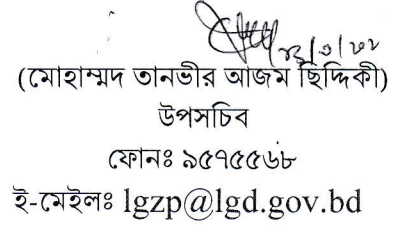 (মোহাম্মদ তানভীর আজম ছিদ্দিকী)
উপসচিব
ফোনঃ ৯৫৭৫৫৬৮
ই-মেইলঃ lgzp@lgd.gov.bd